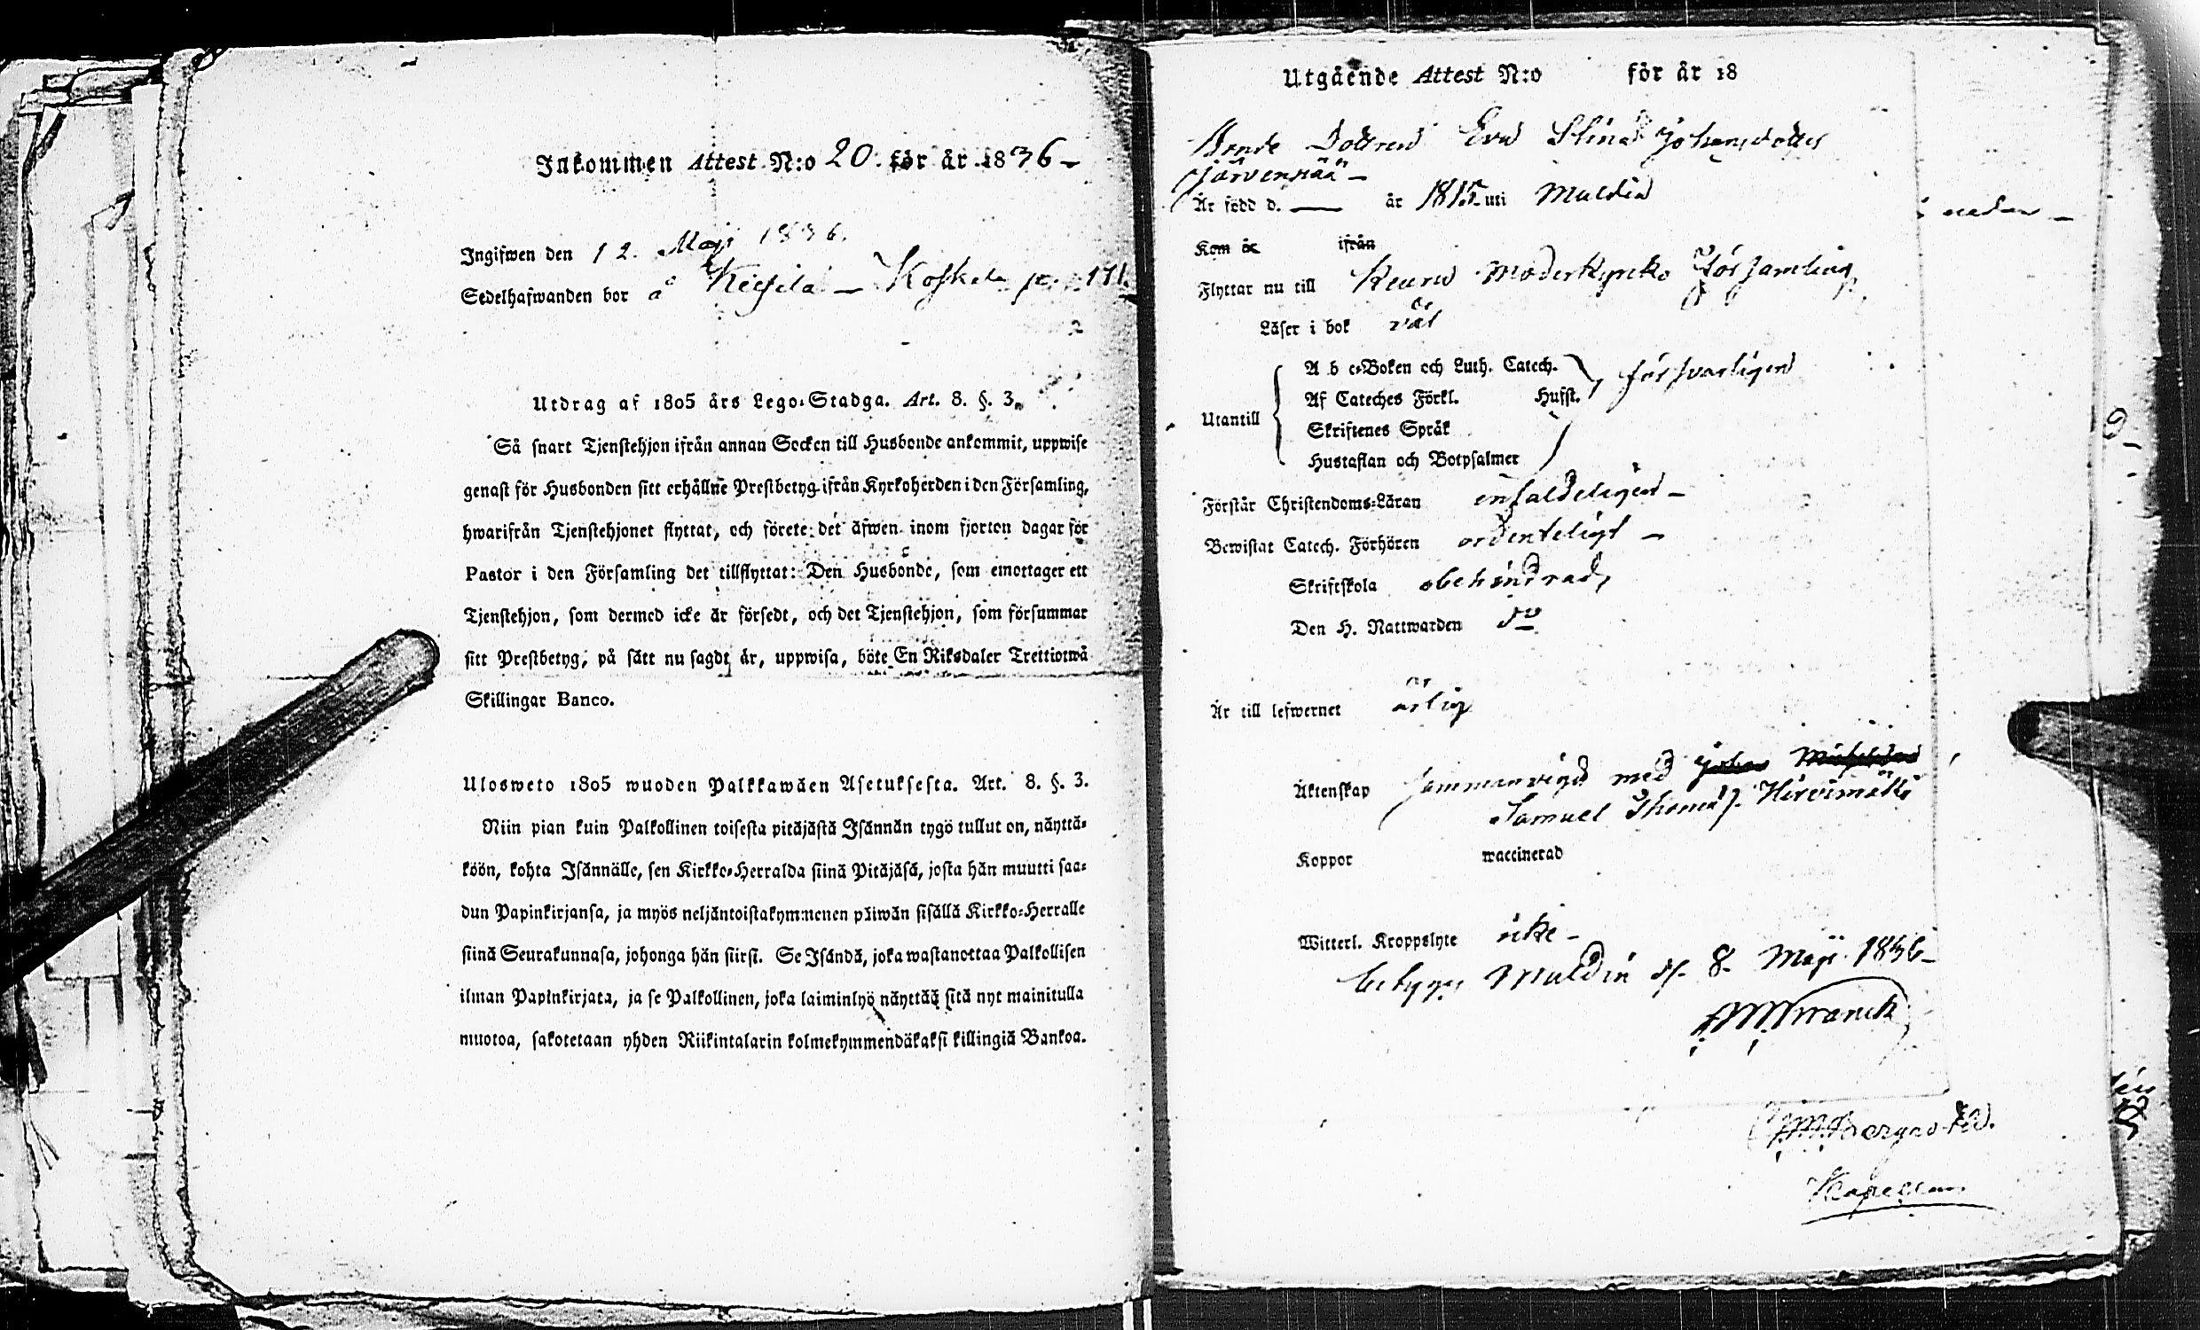 Inkommen Attest N:o 20. för år 1836 –
Ingifwen den 12. Maji 1836.
Sedelhafwanden bor å Keisila – Koskela p. 171.
Utdrag af 1805 års Lego-Stadga. Art. 8. §. 3.
Så snart Tjenstehjon ifrån annan Socken till Husbonde ankommit, uppwise
genast för Husbonden sitt erhållne Prestbetyg ifrån Kyrkoherden i den Församling,
hwarifrån Tjenstehjonet flyttat, och förete det äfwen inom fjorton dagar för
Pastor i den Församling det tillflyttat: Den Husbonde, som emottager ett
Tjenstehjon, som dermed icke är försedt, och det Tjenstehjon, som försummar
sitt Prestbetyg, på sätt nu sagdt är, uppwisa, böte En Riksdaler Trettiotwå
Skillingar Banco.
Ulosweto 1805 wuoden Palkkawäen Asetuksesta. Art. 8. §. 3.
Niin pian kuin Palkollinen toisesta pitäjästä Isännän tygö tullut on, näyttä-
köön, kohta Isännälle, sen Kirkko-Herralda siinä Pitäjäsä, josta hän muutti saa-
dun Papinkirjansa, ja myös neljäntoistakymmenen päiwän sisällä Kirkko-Herralle
siinä Seurakunnasa, johonga hän siirsi. Se Isändä, joka wastanottaa Palkollisen
ilman Papinkirjata, ja se Palkollinen, joka laiminlyö näyttää sitä nyt mainitulla
muotoa, sakotetaan yhden Riikintalarin kolmekymmendäkaksi killingiä Bankoa.
Utgående Attest N:o för år 18
Bonde Dottren Eva Stina Johansdotter
Järvenpää –
Är född d. — år 1815 uti Muldia
Kom år ifrån
Flyttar nu till Keuru Moderkyrko Församling,
Läser i bok väl
A b c-Boken och Luth. Catech. försvarligen
Af Cateches Förkl. Hufst.
Utantill
Skriftenes Språk
Hustaflan och Botpsalmer
Förstår Christendoms-Läran enfaldeligen –
Bewistat Catech. Förhören ordenteligt –
Skriftskola obehindrad,
Den H. Nattwarden do
Är till lefwernet ärlig
Äktenskap sammanvigd med
Samuel Thomæs. Hirvimäki
Koppor waccinerad
Witterl. Kroppslyte icke –
betygar Muldia d. 8. Maji 1836 –
Kapellan